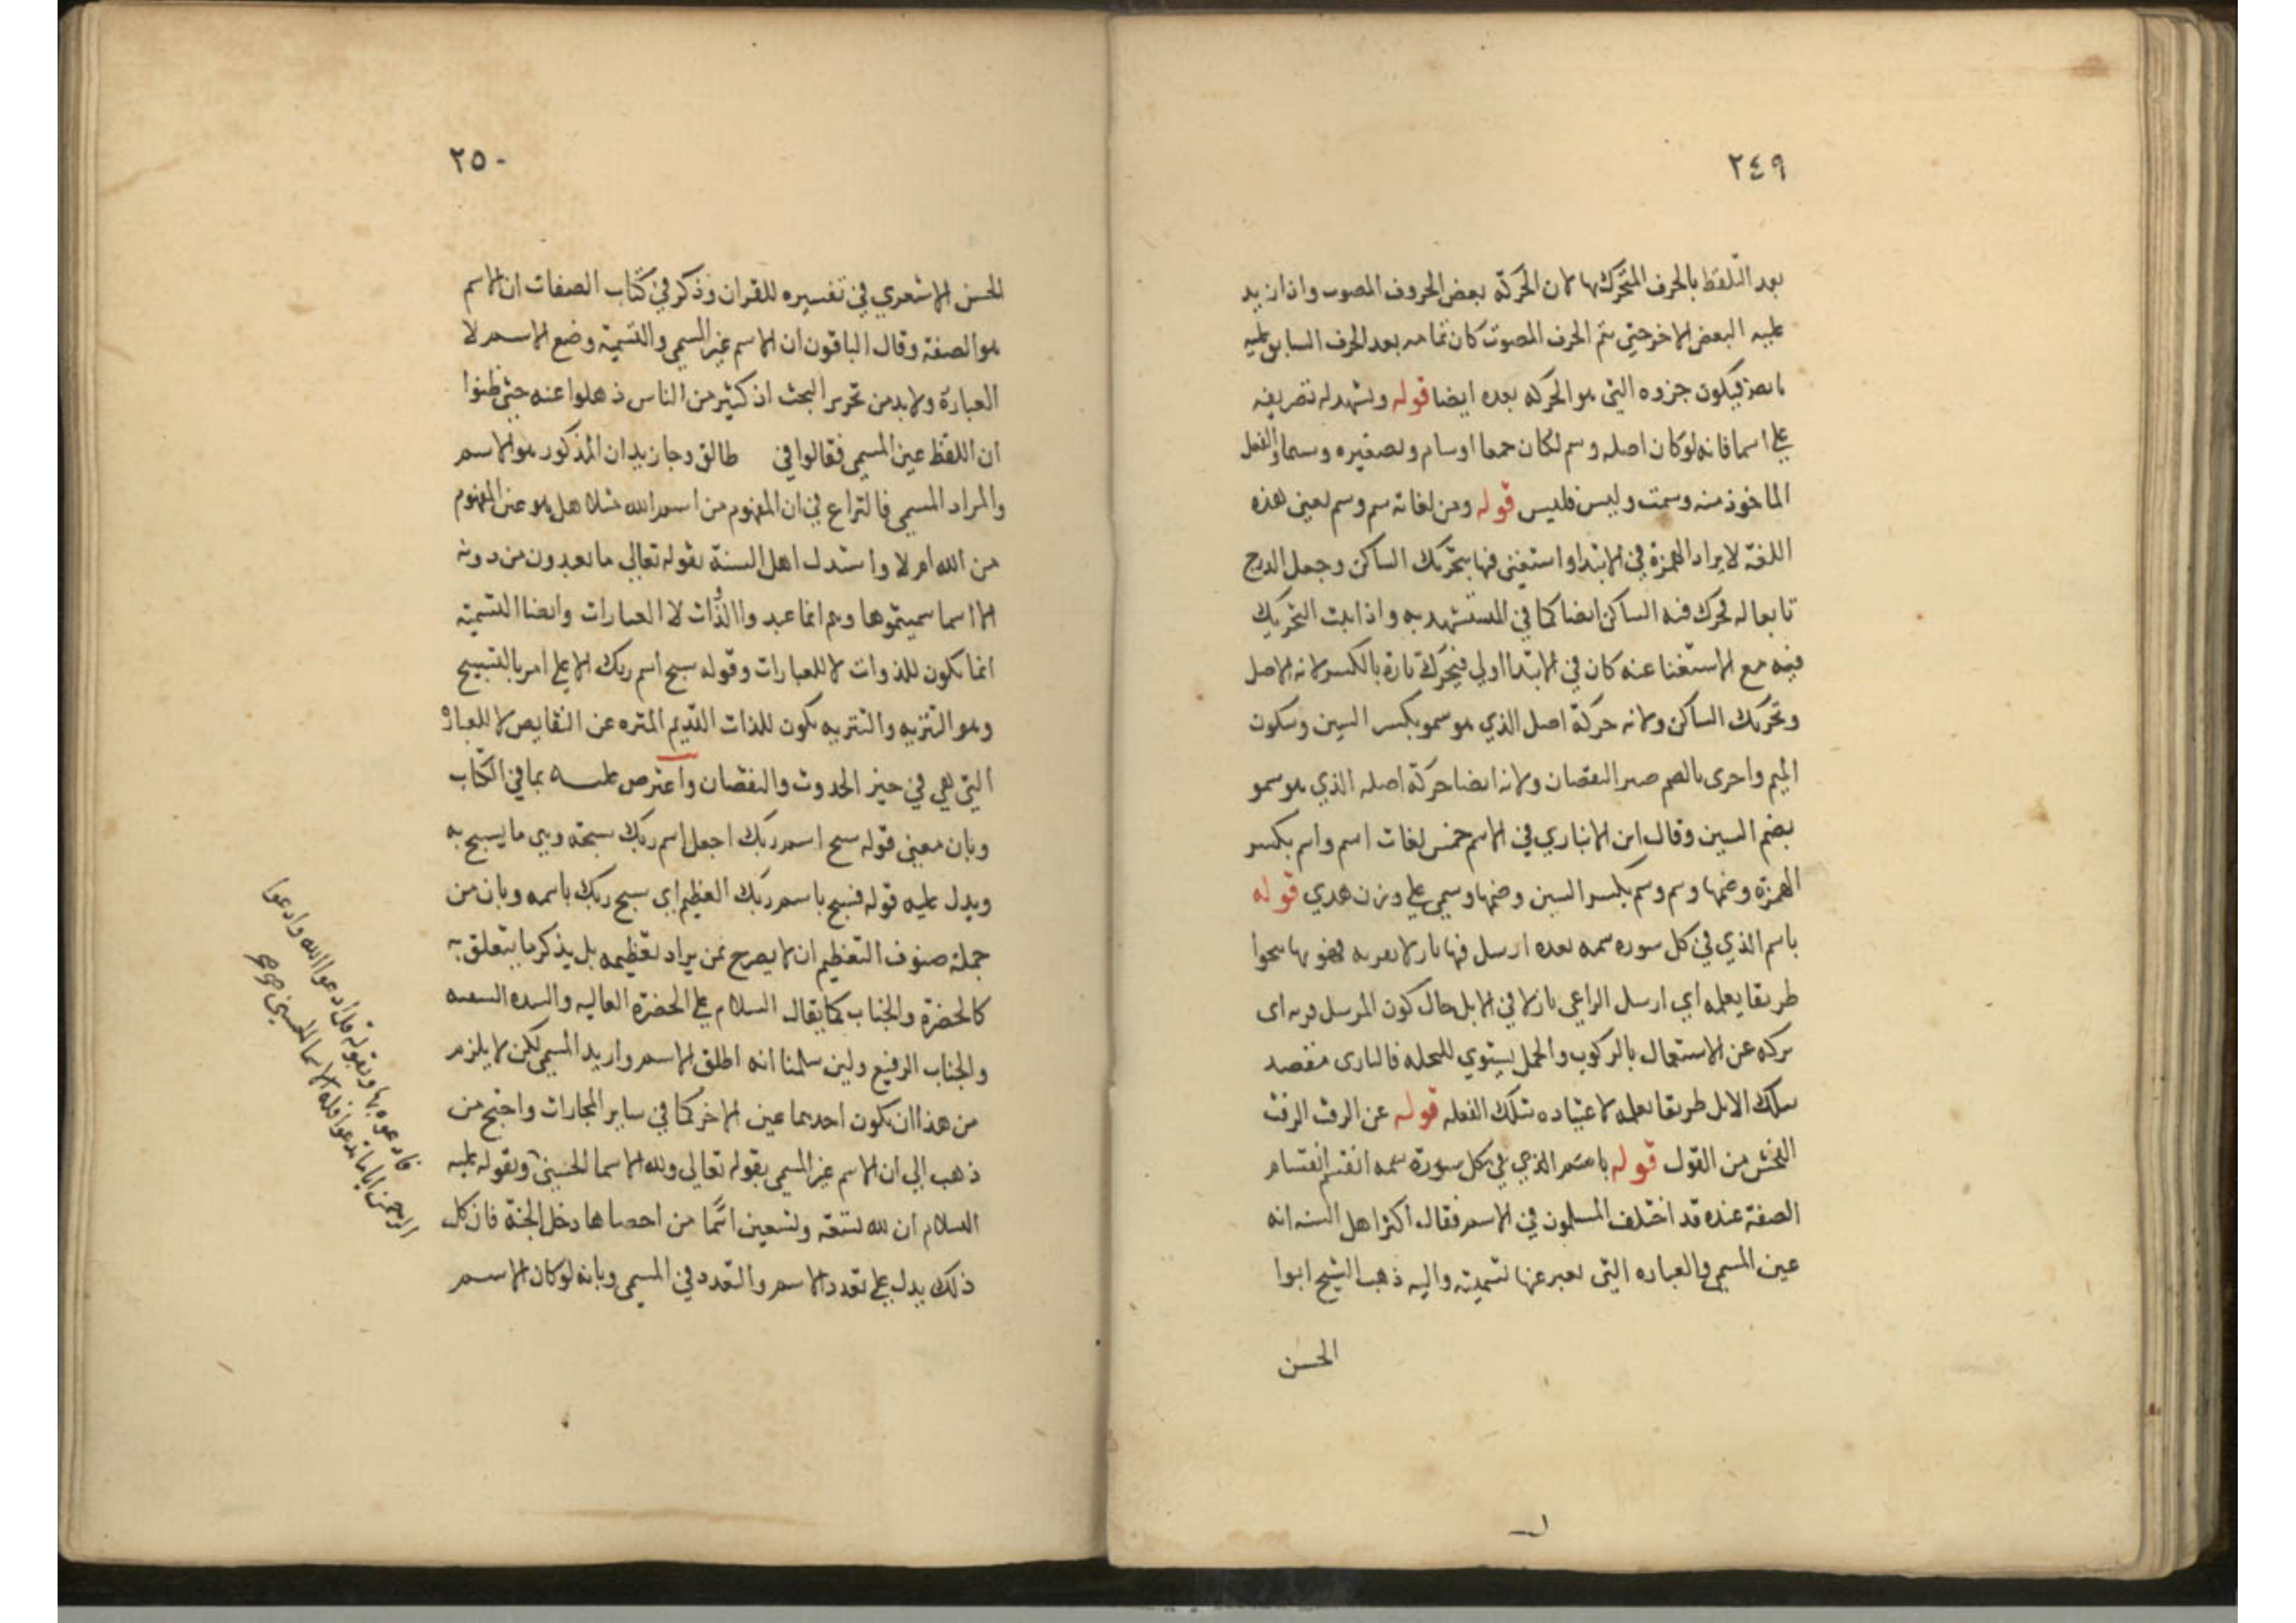 ٢٤٩
بعد التلفظ بالحرف المتحرك بها لان الحركة بعض الحروف المصوت واذا زيد
عليه البعض الاخر حتي يتم الحرف المصوت كان تمامه بعد الحرف السابق عليه
فيكون جزوه التي هو الحركه بعده ايضا قوله ويشهد له تصريفه
علي اسما فانه لو كان اصله وسم لكان جمعا اوسام وتصغيره وسيما والفعل
الماخوذ منه وسمت وليس فليس قوله ومن لغاته سم وسم لعين هذه
اللغة لا يراد الهمزة في الابتدا واستغني فيها بتحريك الساكن وجعل الدرج
تابعا له فحرك فيه الساكن ايضا كما في المستشهد به واذا ثبت التحريك
فيه مع الاستغنا عنه كان في الابتدا اولي فيحرك تارة بالكسر لانه الاصل
وتحريك الساكن ولانه حركة اصل الذي هو سمو بكسر السين وسكون
الميم واخرى بالضم النقصان ولانه ايضا حركة اصله الذي هو سمو
بضم السين وقال ابن الانباري في الاسم خمس لغات اسم واسم بكسر
الهمزة وضمها وسم وسم بكسر السين وضمها وسمي علي وزن هدي قوله
باسم الذي في كل سوره سمه بعده ارسل فيها
طريقا يعلمه اي ارسل الراعي بازلا في الابل حال كون المرسل
تركه عن الاستعمال بالركوب والحمل ليستوي للفحله فالبازل يقصد
سلك الابل طريقا يعلمه لاعتياده تلك الفعله قوله عن الرفث الرفث
الفحش من القول قوله باسم الذي في كل سورة سمه انقسم انقسام
الصفة عنده قد اختلف المسلمون في الاسم فقال اكثر اهل السنه انه
عين المسمي والعباره التي يعبر عنها تسميته واليه ذهب الشيخ ابوا
الحسن
٢٥٠
الحسن الاشعري في تفسيره للقران وذكر في كتاب الصفات ان الاسم
هو الصفة وقال الباقون ان الاسم غير المسمي والتسمية وضع الاسم لا
العبارة ولا بد من تحرير البحث اذ كثير من الناس ذهلوا عنه حتي ظنوا
ان اللفظ عين المسمي فقالوا في طالق وجا زيد ان المذكور هو الاسم
والمراد المسمي فالنزاع في ان المفهوم من اسم الله مثلا هل هو عين المفهوم
من الله ام لا واستدل اهل السنة بقوله تعالي ما تعبدون من دونه
الا اسما سميتموها وهم انما عبدوا الذوات لا العبارات وايضا التسمية
انما تكون للذوات لا للعبارات وقوله سبح اسم ربك الاعلي امر بالتسبيح
وهو التنزيه والتنزيه يكون للذات القديم المنزه عن النقايص لا للعبارة
التي هي في حيز الحدوث والنقصان واعترض عليه بما في الكتاب
وبان معني قوله سبح اسم ربك اجعل اسم ربك سبحة وهي ما يسبح به
ويدل عليه قوله فسبح باسم ربك العظيم اي سبح ربك باسمه وبان من
جملة صنوف التعظيم ان لا يصرح بمن يراد تعظيمه بل يذكر ما يتعلق به
كالحضرة والجناب كما يقال السلام علي الحضرة العاليه والسده السنيه
والجناب الرفيع ولين سلمنا انه اطلق الاسم واريد المسمي لكن لا يلزم
من هذا ان يكون احدهما عين الاخر كما في ساير المجازات واحتج من
ذهب الي ان الاسم غير المسمي بقوله تعالي ولله الاسما الحسني وبقوله عليه
السلام ان لله تسعة وتسعين اسما من احصاها دخل الجنة فان كل
ذلك يدل علي تعدد الاسم والتعدد في المسمي وبانه لو كان الاسم
فادعوه بها وبقوله قل ادعوا الله وادعوا
الرحمن ايا ما تدعوا فله الاسما الحسني